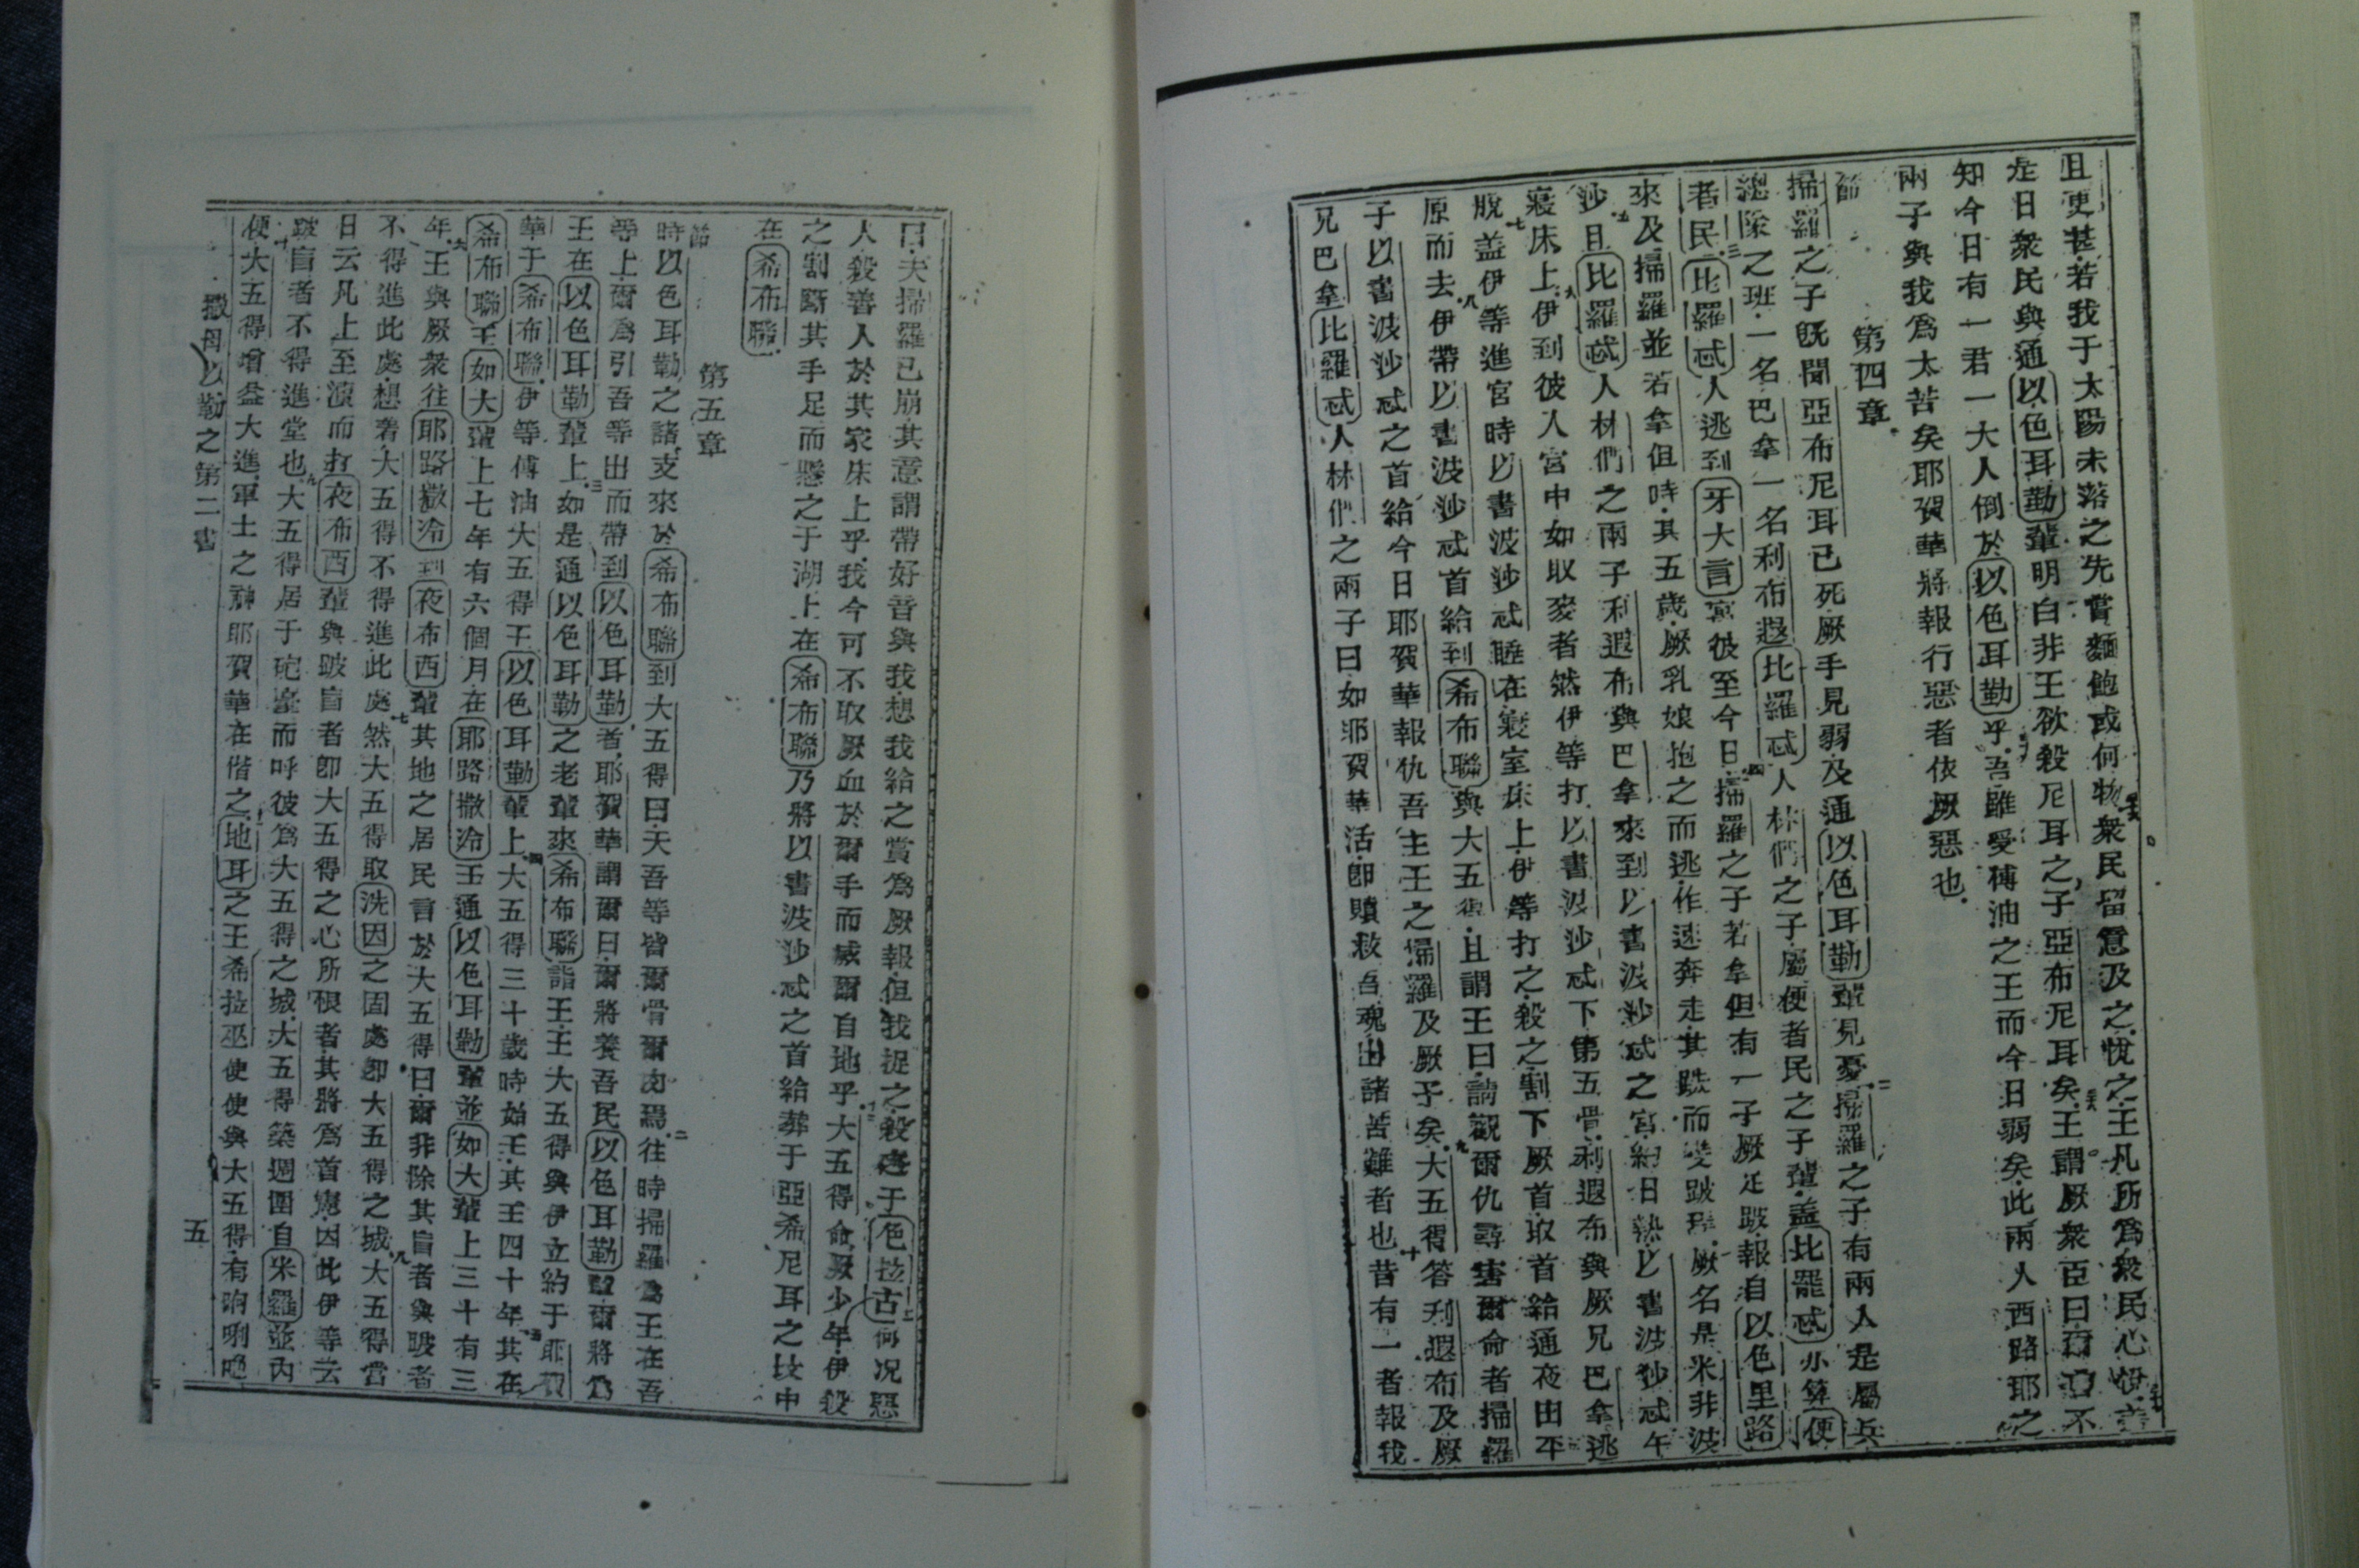 且更甚若我于太陽未落之先嘗麵飽或何物衆民留意及之悅之王凡所爲衆民心悅
是日衆民與通以色耳勒輩明白非王欲殺尼耳之子亞布尼耳矣王謂厥衆臣曰不
知今日有一君一大人倒於以色耳勒乎吾雖受傅油之王而今日弱矣此兩人西路耶之
兩子與我爲太苦矣耶賀華將報行惡者依厥惡也
節 第四章
掃羅之子旣聞亞布尼耳已死厥手見弱及通以色耳勒輩見憂二掃羅之子有兩人是屬兵
總隊之班一名巴拿一名利布遐比羅忒人林們之子屬便者民之子輩盖比羅忒亦算便
者民三比羅忒人逃到牙大言寓彼至今日四掃羅之子若拿但有一子厥足跛報自以色里路
來及掃羅並若拿但時其五歲厥乳娘抱之而逃作速奔走其跌而變跛厥名是米非波
沙五且比羅忒人林們之兩子利遐布與巴拿來到以書波沙忒之宮約日熱以書波沙忒午
寢床上六伊到彼入宮中如取麥者然伊等打以書波沙忒下第五骨利遐布與厥兄巴拿逃
脫七盖伊等進宮時以書波沙忒睡在寢室床上伊等打之殺之割下厥首取首給通夜由平
原而去八伊帶以書波沙忒首給到希布聯與大五得且謂王曰請觀爾仇尋害爾命者掃羅
子以書波沙忒之首給今日耶賀華報仇吾主王之掃羅及厥子矣九大五得答利遐布及厥
兄巴拿比羅忒人林們之兩子曰如耶賀華活卽贖救吾魂出諸苦難者也十昔有一者報我
曰夫掃羅已崩其意謂帶好音與我想我給之賞爲厥報但我捉之殺之于色拉古十一何况惡
人殺善人於其家床上乎我今可不取厥血於爾手而滅爾自地乎十二大五得命厥少年伊殺
之割斷其手足而懸之于湖上在希布聯乃將以書波沙忒之首給葬于亞希尼耳之坟中
在希布聯
節 第五章
時以色耳勒之諸支來於希布聯到大五得曰夫吾等皆爾骨爾肉焉二往時掃羅爲王在吾
等上爾爲引吾等出而帶到以色耳勒者耶賀華謂爾曰爾將養吾民以色耳勒輩爾將爲
王在以色耳勒輩上三如是通以色耳勒之老輩來希布聯詣王王大五得與伊立約于耶賀
華于希布聯伊等傅油大五得王以色耳勒輩上四大五得三十歲時始王其王四十年五其在
希布聯王如大輩上七年有六個月在耶路撒冷王通以色耳勒輩並如大輩上三十有三
年六王與厥衆往耶路撒冷到夜布西輩其地之居民言於大五得曰爾非除其盲者與跛者
不得進此處想著大五得不得進此處七然大五得取洗因之固處卽大五得之城八大五得當
日云凡上至瀆而打夜布西輩與跛盲者卽大五得之心所恨者其將爲首憲因此伊等云
跛盲者不得進堂也九大五得居于砲臺而呼彼爲大五得之城大五得築週圍自米羅並內
十便大五得增益大進軍士之神耶賀華在偕之十一地耳之王希拉巫使使與大五得有
撒母以勒之第二書 五